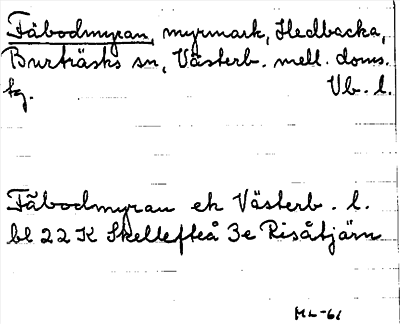 Fäbodmyran, myrmark, Hedbacka,
Burträsks sn, Västerb. mell. doms.
tg. Vb. l.
Fäbodmyran ek Västerb. l.
bl 22 K Skellefteå 3e Risåtjärn
ML-61